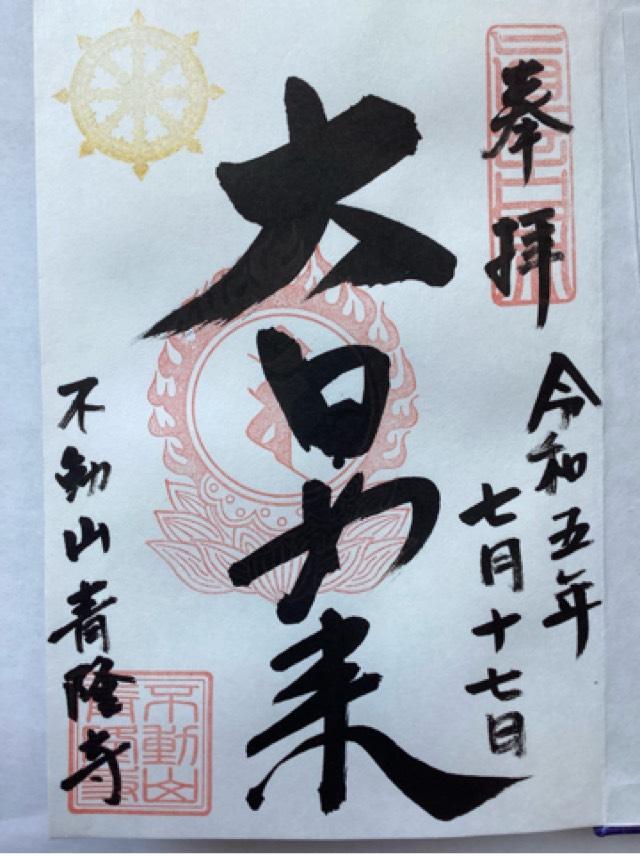 奉拝
令和五年
七月十七日
大日如来
不動山青隆寺
不動山
青隆寺